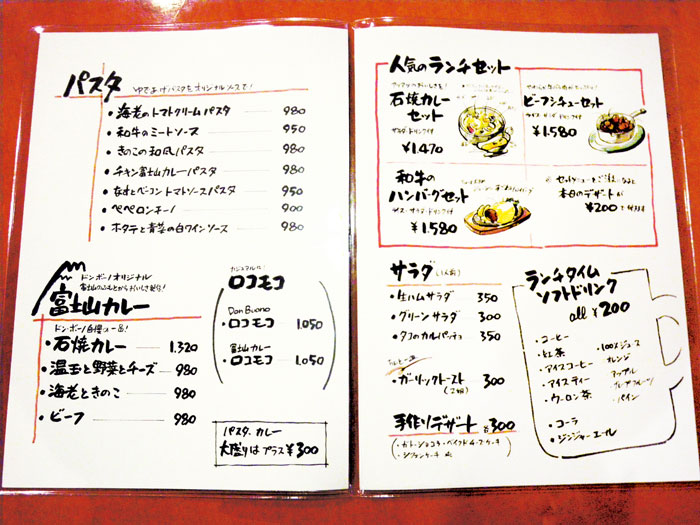 パスタ
ゆであげパスタをオリジナルソースで!
・海老のトマトクリームパスタ 980
・和牛のミートソース 950
・きのこの和風パスタ 980
・チキン富士山カレーパスタ 980
・なすとベーコントマトソースパスタ 950
・ペペロンチーノ 900
・ホタテと青菜の白ワインソース 980
ドンボーノオリジナル
富士山カレー
ドンボーノ自慢の一品!
・石焼カレー 1,320
・温玉と野菜とチーズ 980
・海老ときのこ 980
・ビーフ 980
カジュアル
ロコモコ
Don Buono
・ロコモコ 1,050
富士山カレー
・ロコモコ 1,050
パスタ、カレー
大盛りはプラス¥300
人気のランチセット
石焼カレー
セット
サラダ・ドリンク付
¥1,470
ビーフシチューセット
ライス・サラダ・ドリンク付
¥1,580
和牛の
ハンバーグセット
ライス・サラダ・ドリンク付
¥1,580
本日のデザートが
¥200
サラダ
・生ハムサラダ 350
・グリーンサラダ 300
・タコのカルパッチョ 350
・ガーリックトースト 300
(2個)
手作りデザート 各300
(・ガトーショコラ・ベイクドチーズケーキ
・シフォンケーキ etc
ランチタイム
ソフトドリンク
all ¥200
・コーヒー
・紅茶
・アイスコーヒー
・アイスティー
・ウーロン茶
・コーラ
・ジンジャーエール
・100%ジュース
オレンジ
アップル
グレープフルーツ
パイン